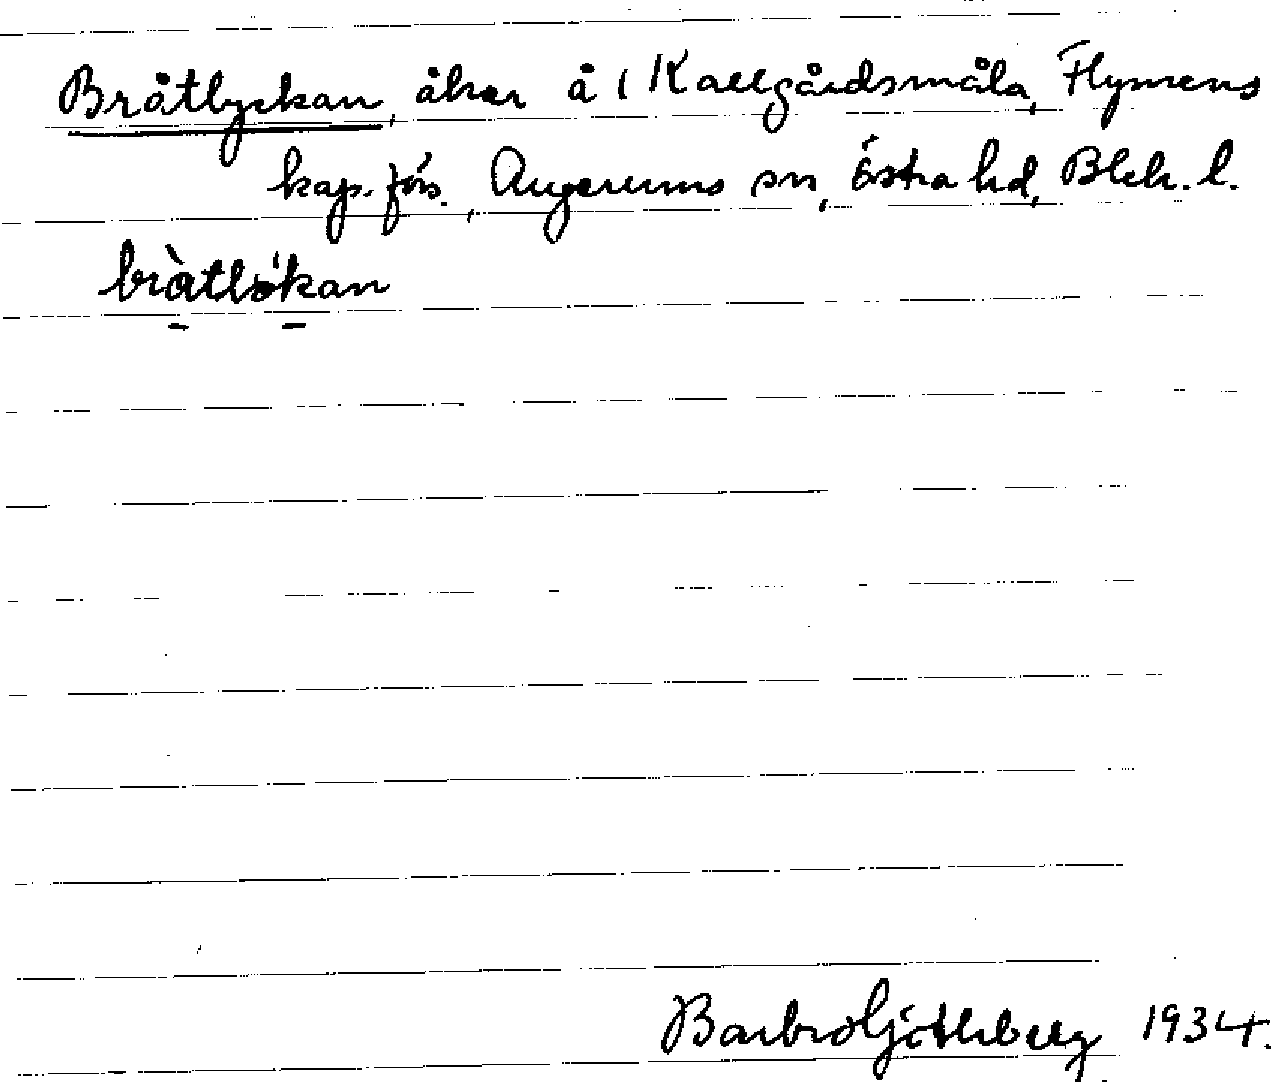 Bråtlyckan, åker å 1 Kallgårdsmåla, Flymens
kap. förs., Augerums sn, östra hd, Blek. l.
bràtlökan
Barbro Götherberg 1934.